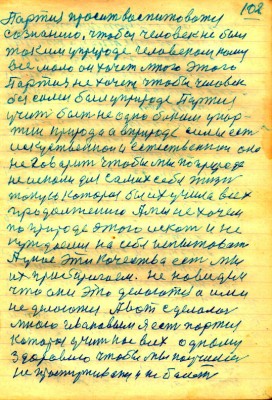 102
Партия просит воспитовать
сознание, чтобы человек не был
таким уприроде человеком кому
все мало он хочет много этого
Партия не хочет чтобы человек
без силы был уприроде Партия
учит быть не одно
природа а вприроде силы есть
искуственное и естественное она
не говорит чтобы мы по природе
не искали для самих себя жизни
такую которая бы их учила всех
продолжению А мы не хочем
по природе этого искать и не
нуждаемся на себя испытовать
А у нас эти качества есть мы
их приобретаем. не поведем
что они это делают а или
не делают А вот сделала
много Ивановым Я есть партия
которая учит нас всех одному
здоровию чтобы мы научились
не простуживаться и не болеть